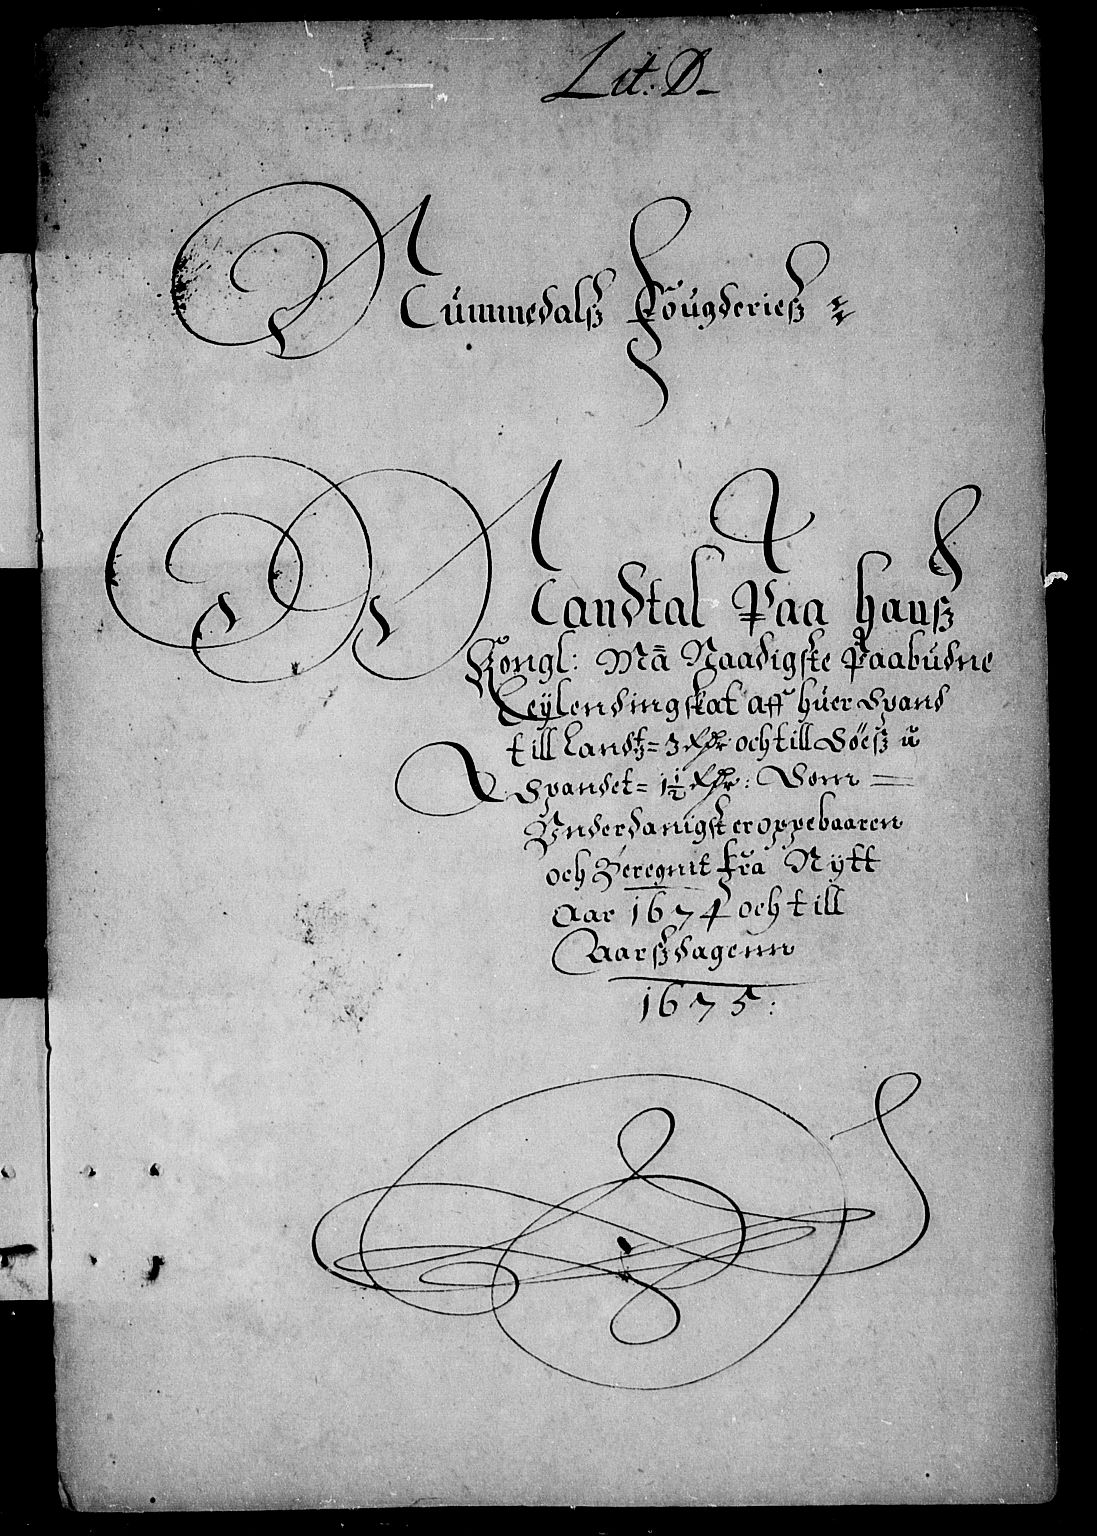 Lit: D
Nummedalß Fougderieß
Mandtal Paa hanß
Kongl: Mā Naadigste Paabudne
Leÿlendingskat aff huer Spand
till Landtz = 3 Rdr och till Söeß
Spandet = 1½ Rdr: Som
Vnderdanigst er oppebaaren
och Beregnit fra Nytt
Aar 1674 och till
Aarßdagenn
1675: